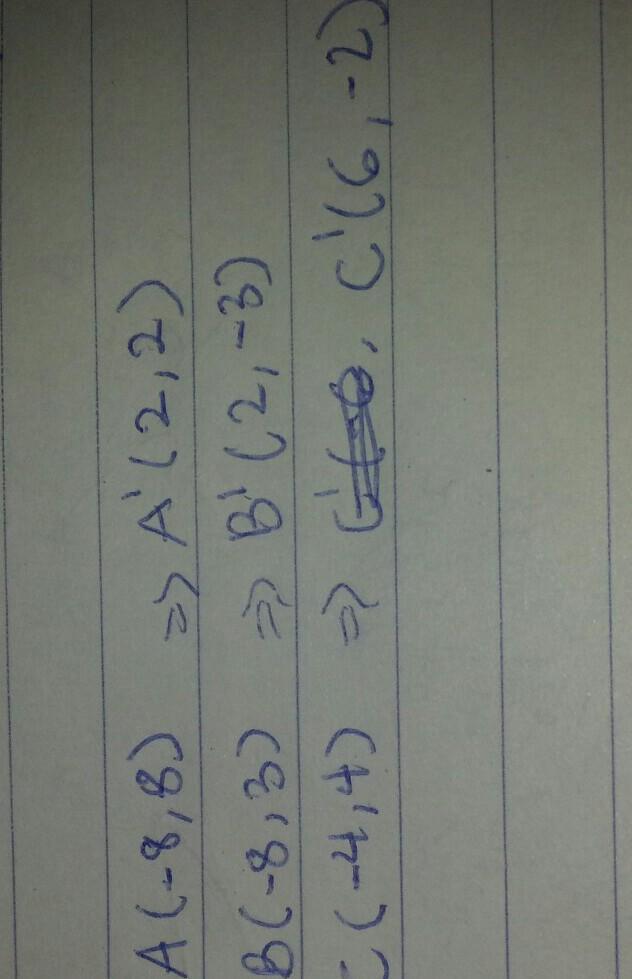 A(-8,8) => A'(2,2)
B(-8,3) => B'(2,-3)
C(-4,4) => C'(6,-2)